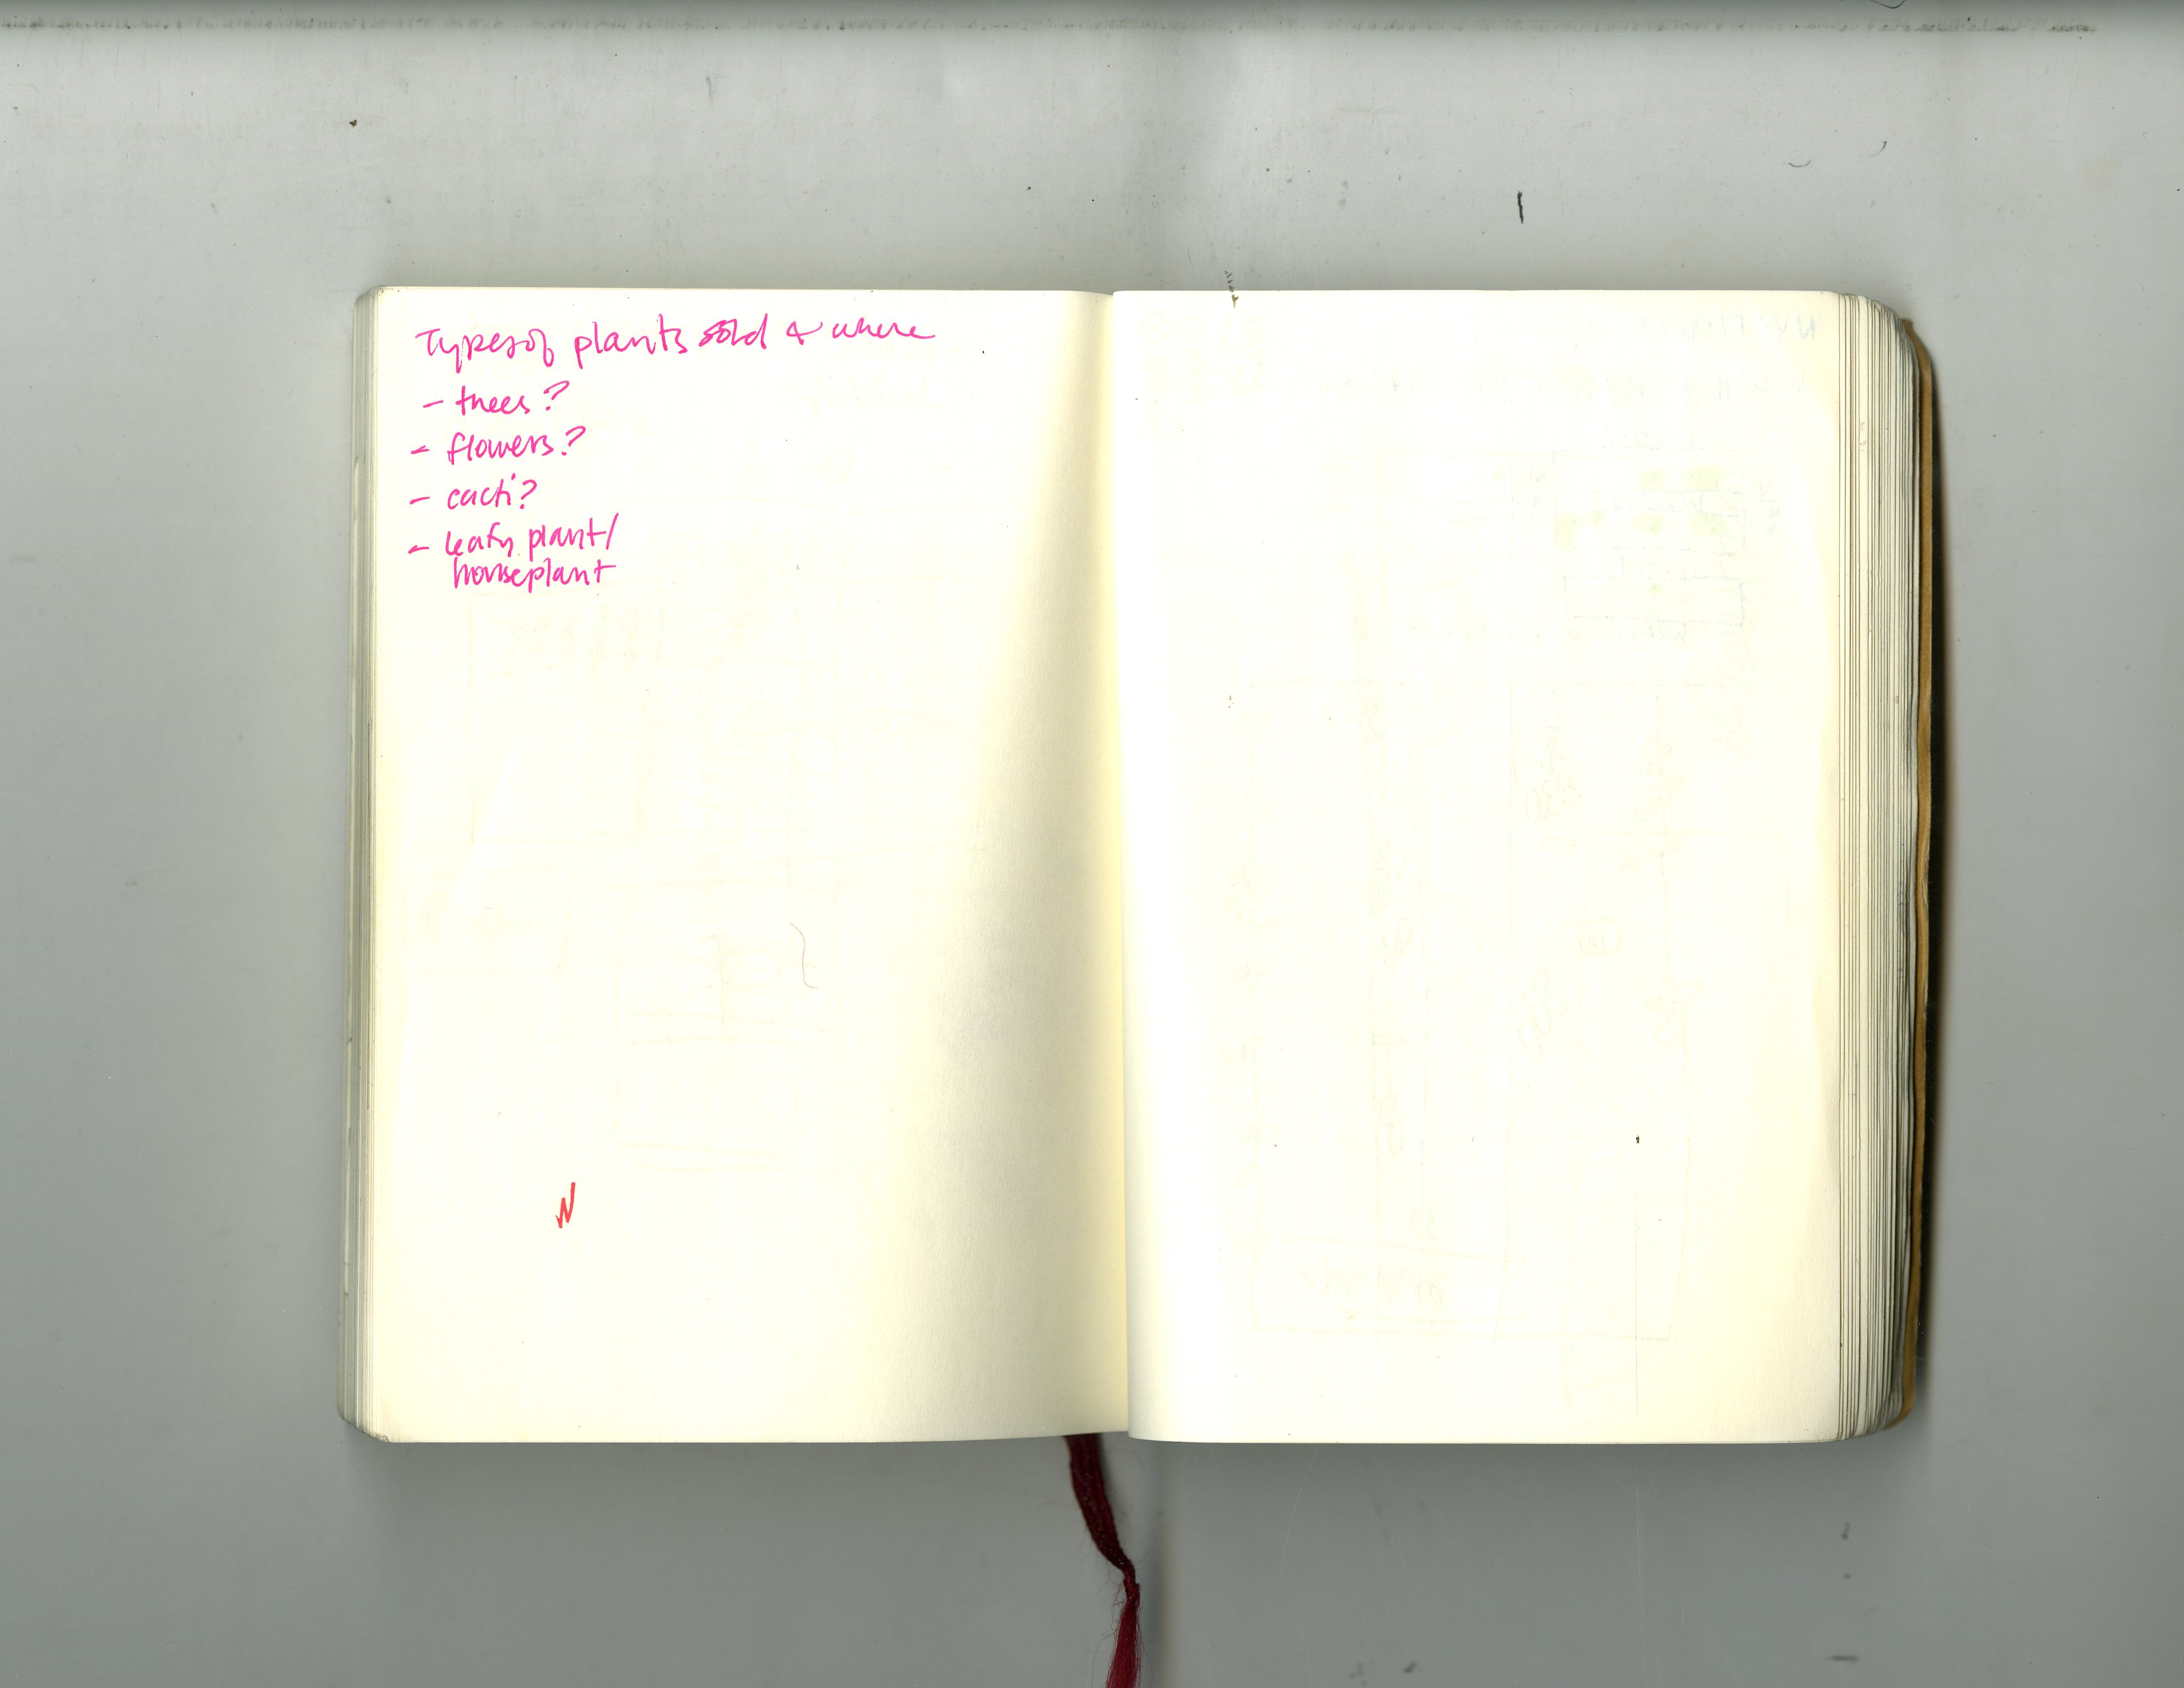 Types of plants sold & where
- trees?
- flowers?
- cacti?
- leafy plant/
houseplant
N